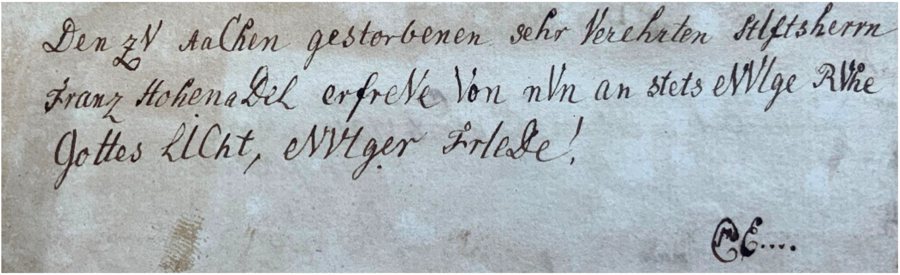 Den zV AaChen gestorbenen sehr Verehrten StIftsherrn
Franz HohenaDeL erfreVe Von nVn an stets eVVIge RVhe
Gottes LICht, eVVIger FrIeDe!